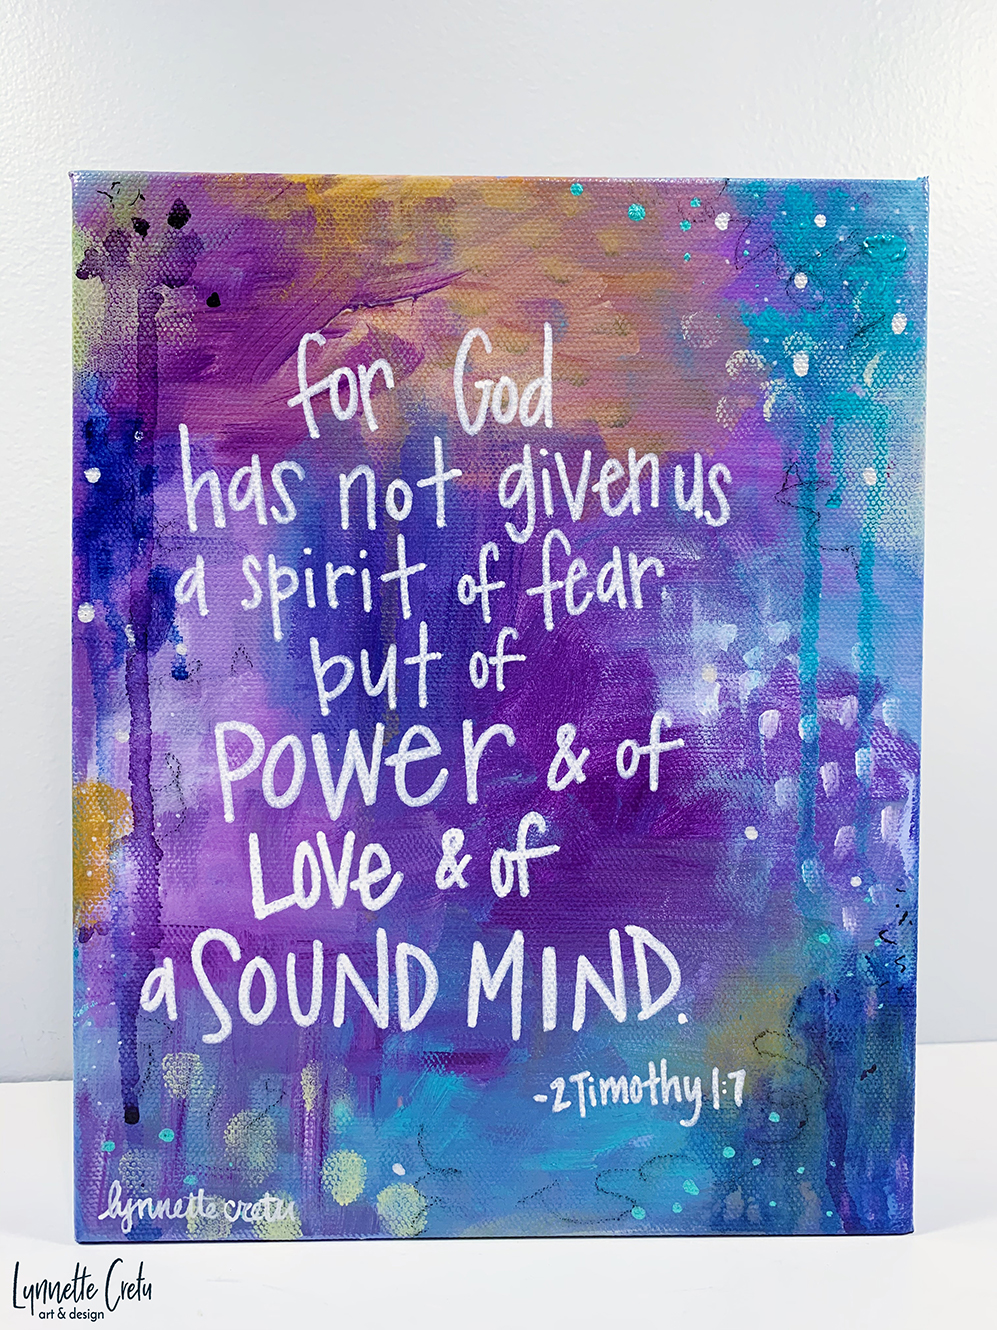 for God
has not given us
a spirit of fear.
but of
Power & of
Love & of
a SOUND MIND.
-2 Timothy 1:7
lynnette cretu
Lynnette Cretu
art & design